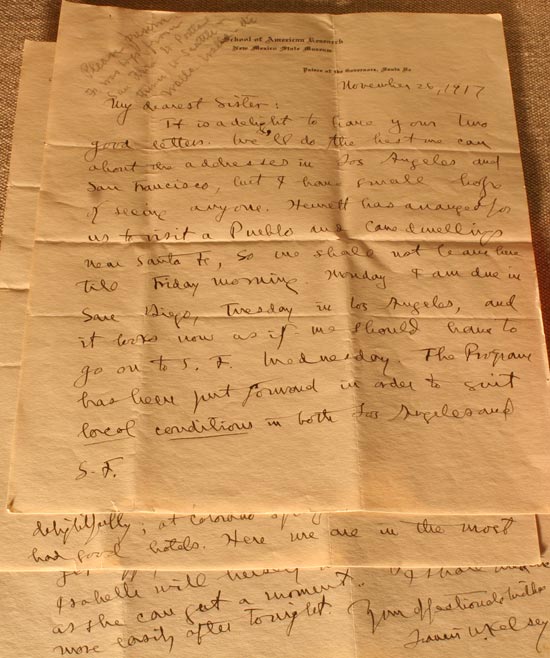 School of American Research
New Mexico State Museum
Palace of the Governors, Santa Fe
November 26, 1917
My dearest Sister:
It is a delight to have your two
good letters. We'll do the best we can
about the addresses in Los Angeles and
San Francisco, but I have small hope
of seeing anyone. Hewett has arranged for
us to visit a Pueblo and Cave dwellings
near Santa Fe, so we shall not leave here
till Friday morning. Monday I am due in
San Diego, Tuesday in Los Angeles, and
it looks now as if we should have to
go on to S. F. Wednesday. The Program
has been put forward in order to suit
local conditions in both Los Angeles and
S. F.
delightfully; at Colorado
had good hotels. Here we are in the most
Isabelle will
as she can get a moment. I shall
more easily after tonight. Your affectionate brother
Francis W. Kelsey